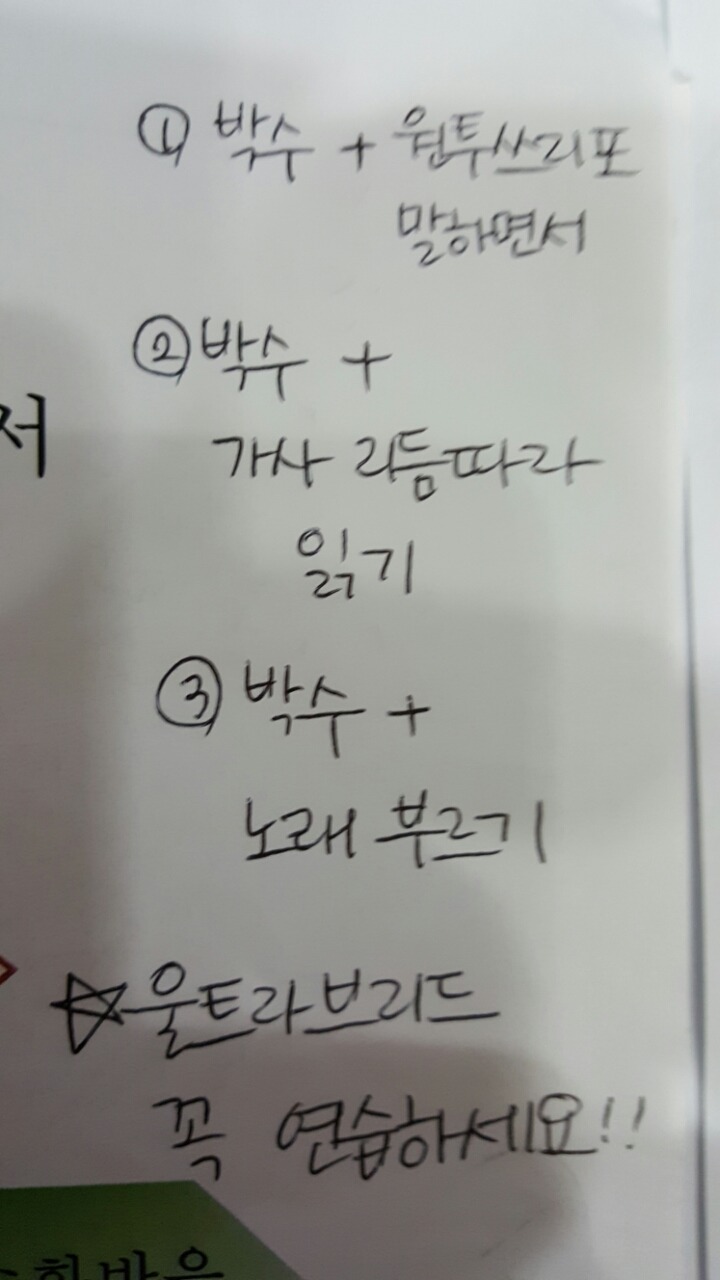 ① 박수 + 원투쓰리포
말하면서
② 박수 +
저
가사 리듬따라
읽기
③ 박수 +
노래 부르기
☆울트라브리드
꼭 연습하세요!!